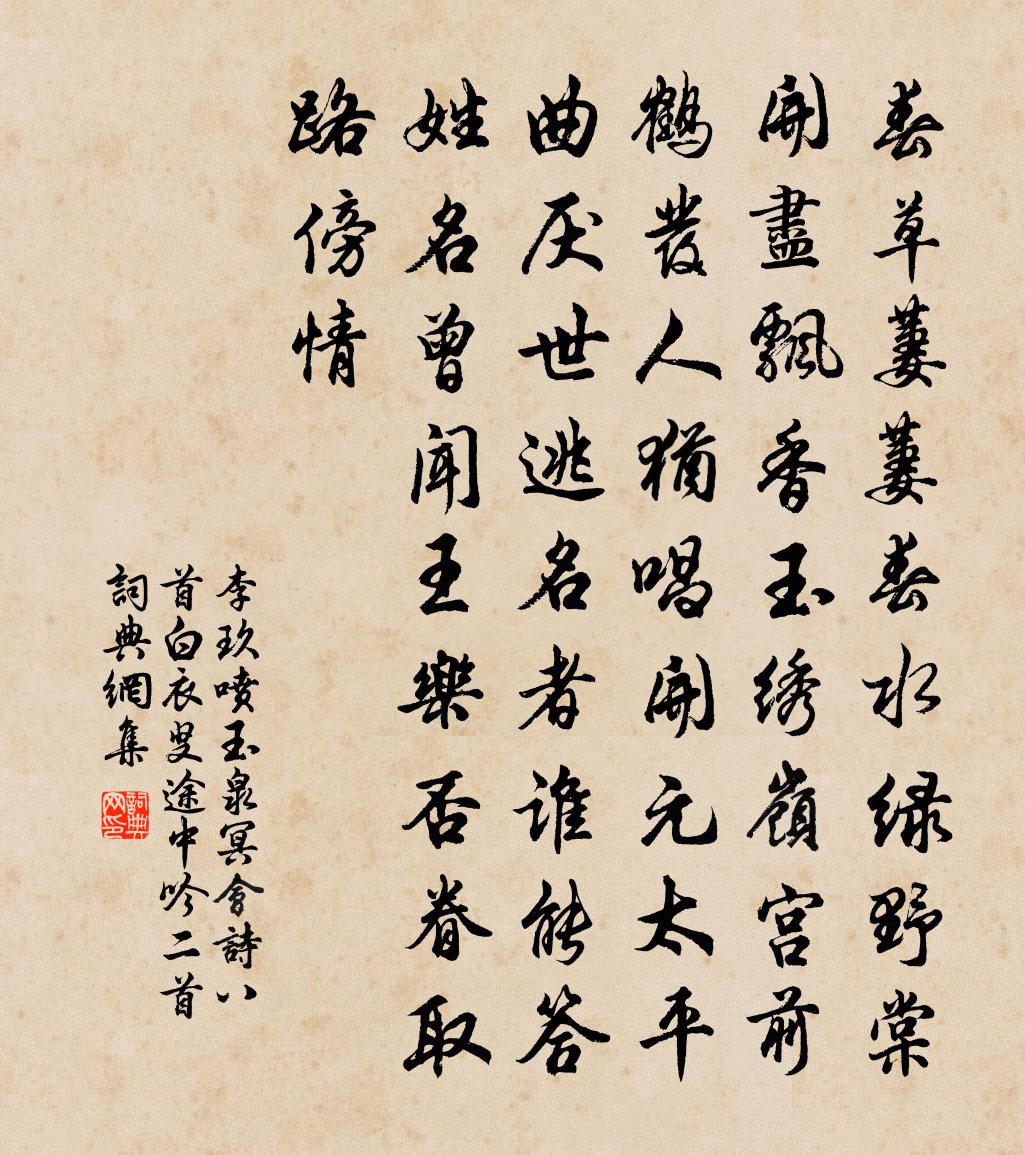 春草萋萋春水绿野棠
開盡飄香玉绣嶺宫前
鶴發人猶唱開元太平
曲厌世逃名者誰能答
姓名曾闻王樂否眷取
路傍情
李玖噴玉泉冥會詩八
首白衣叟途中吟二首
詞典網集
詞典网印